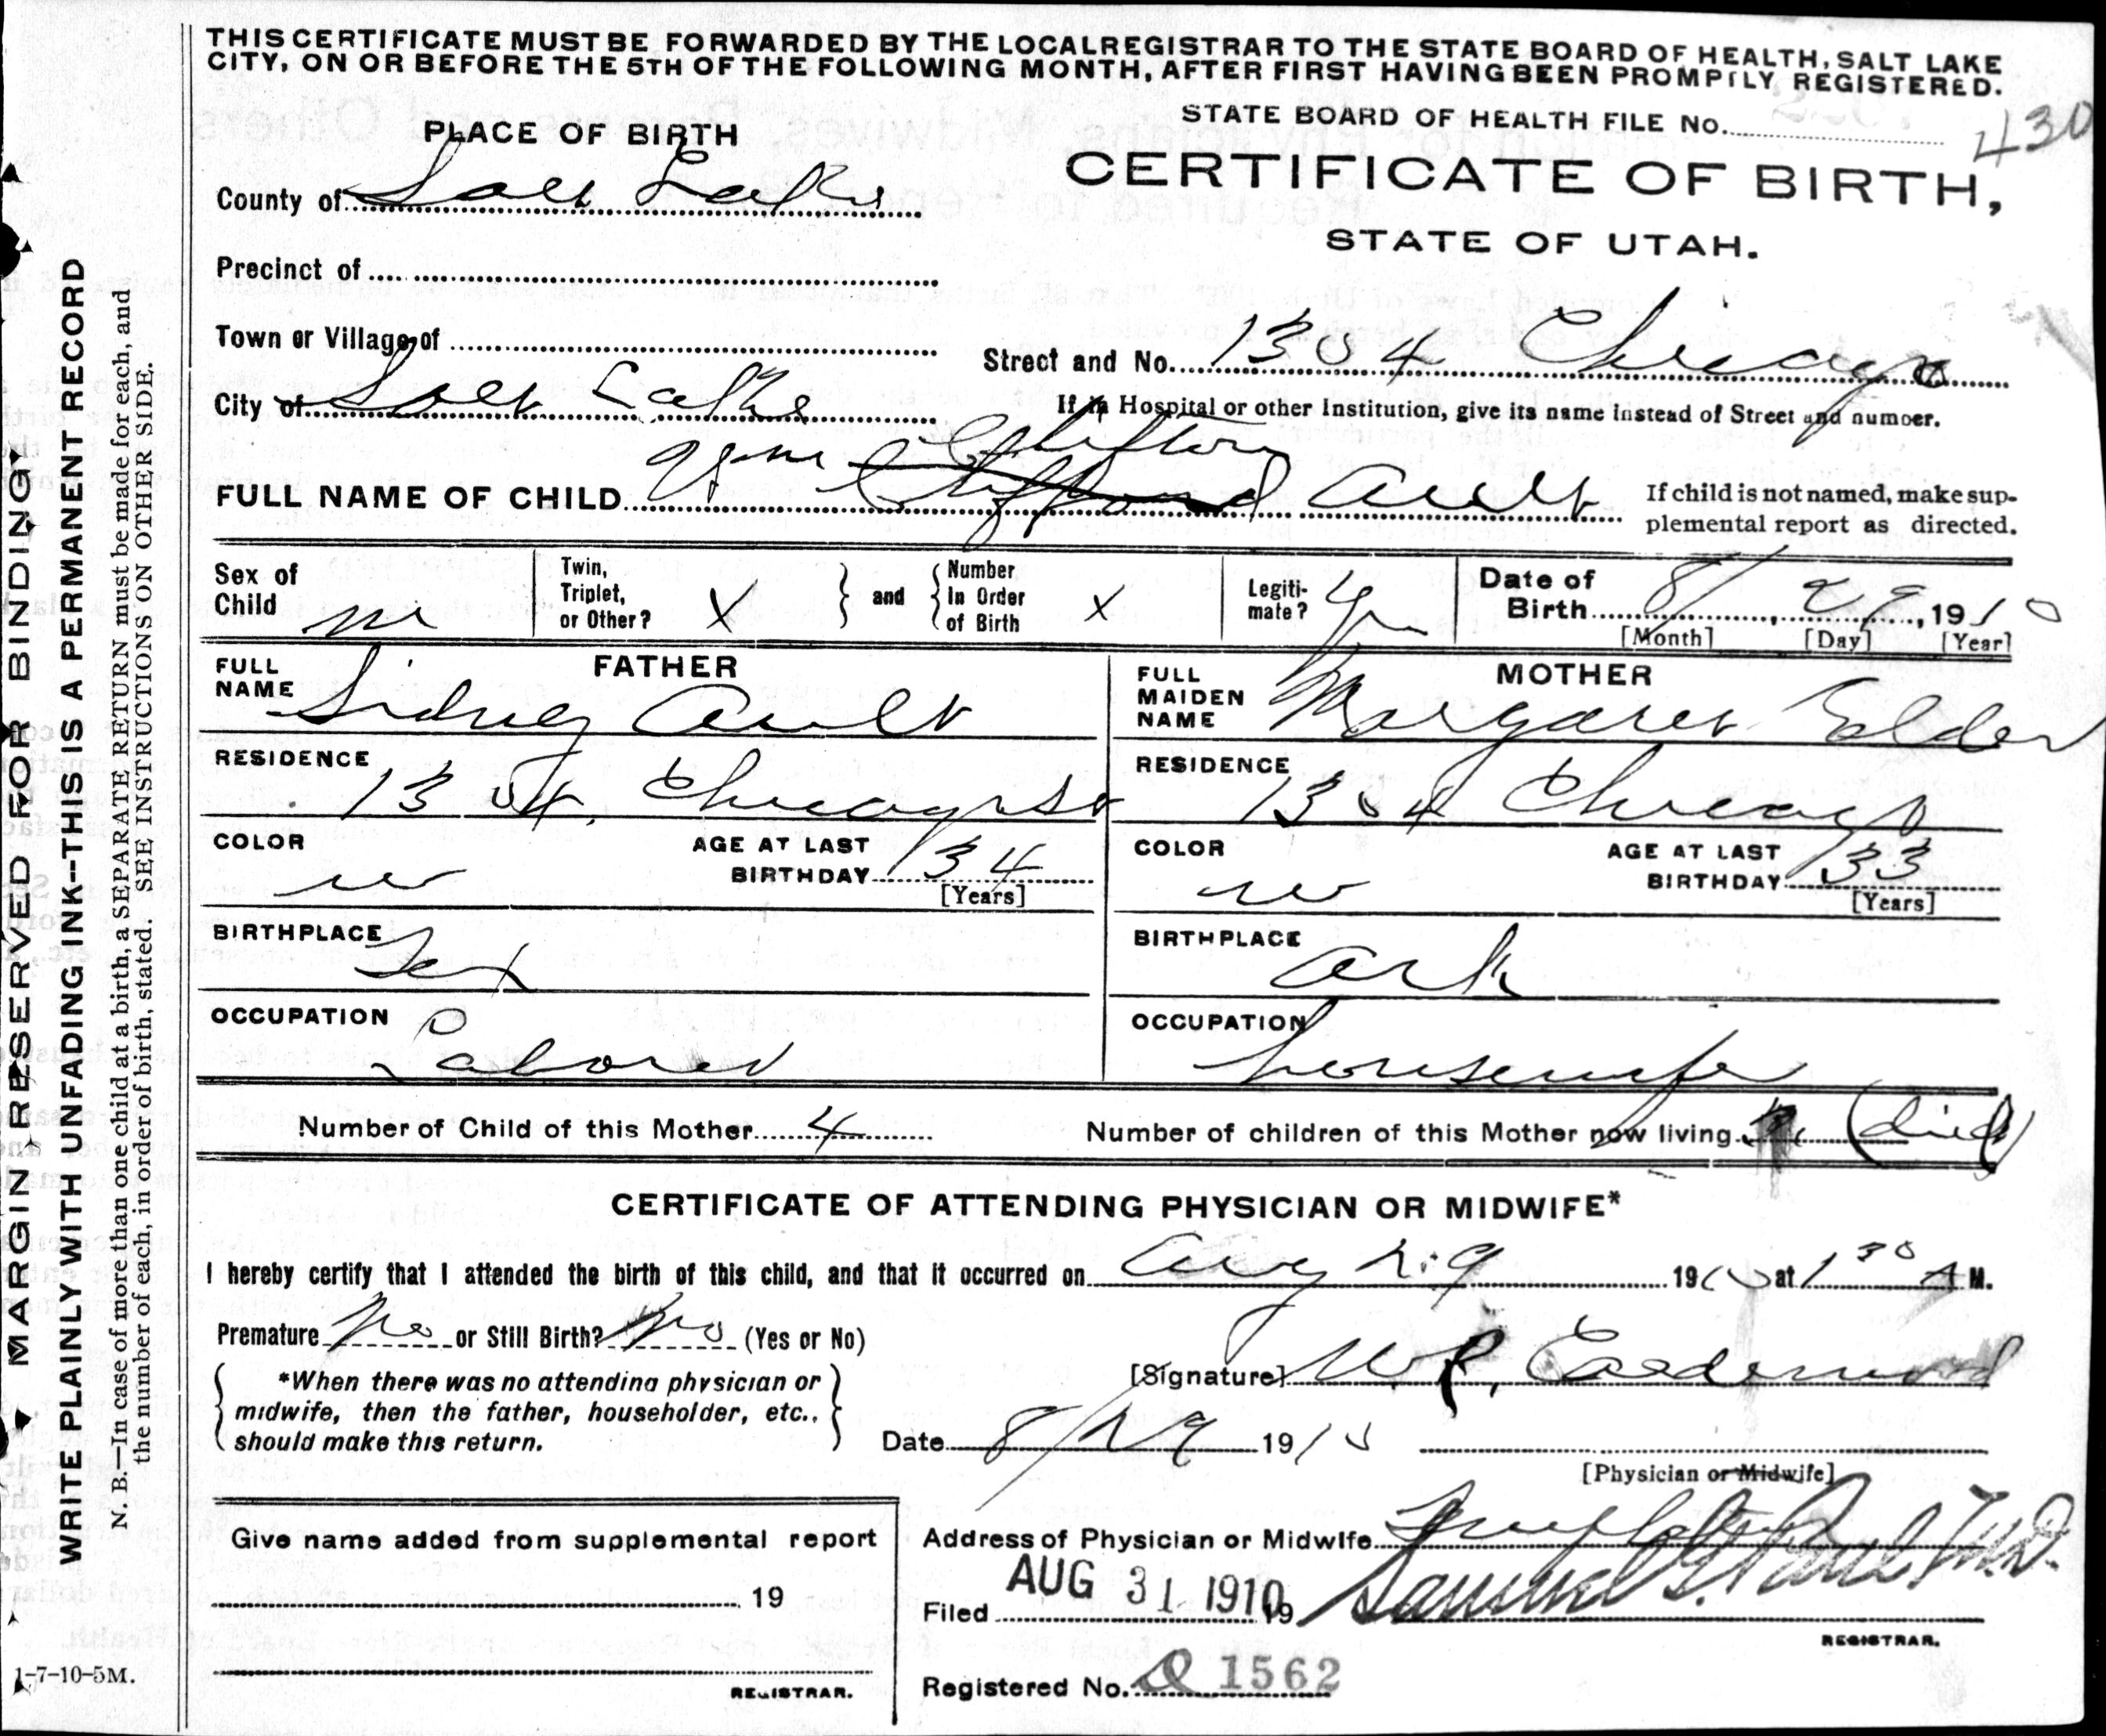 THIS CERTIFICATE MUST BE FORWARDED BY THE LOCAL REGISTRAR TO THE STATE BOARD OF HEALTH, SALT LAKE
CITY, ON OR BEFORE THE 5TH OF THE FOLLOWING MONTH, AFTER FIRST HAVING BEEN PROMPTLY REGISTERED.
STATE BOARD OF HEALTH FILE No. 430
PLACE OF BIRTH
CERTIFICATE OF BIRTH,
STATE OF UTAH.
County of Salt Lake
Precinct of
Town or Village of
Street and No. 1304 Chicago
City of Salt Lake
If in Hospital or other Institution, give its name instead of Street and number.
Clifton
FULL NAME OF CHILD Wm Clifford Ault
If child is not named, make sup-
plemental report as directed.
Sex of Child m
Twin, Triplet, or Other? X
and
Number In Order of Birth X
Legiti-mate? Yes
Date of Birth 8, 29, 1910
[Month] [Day] [Year]
FATHER
FULL NAME Sidney Ault
RESIDENCE 1304 Chicago St
COLOR w
AGE AT LAST BIRTHDAY 34
[Years]
BIRTHPLACE Tex
OCCUPATION Laborer
MOTHER
FULL MAIDEN NAME Margaret Elder
RESIDENCE 1304 Chicago
COLOR w
AGE AT LAST BIRTHDAY 33
[Years]
BIRTHPLACE Ark
OCCUPATION housewife
Number of Child of this Mother 4
Number of children of this Mother now living (died)
CERTIFICATE OF ATTENDING PHYSICIAN OR MIDWIFE*
I hereby certify that I attended the birth of this child, and that it occurred on Aug 29 1910 at 1 30 A M.
Premature No or Still Birth? No (Yes or No)
*When there was no attending physician or
midwife, then the father, householder, etc.,
should make this return.
[Signature] W.R. Calderwood
Date 8/29 1910
[Physician or Midwife]
Give name added from supplemental report
19
REGISTRAR.
Address of Physician or Midwife
Filed AUG 31 1910 19 Samuel G. Paul M.D.
REGISTRAR.
Registered No. Q 1562
MARGIN RESERVED FOR BINDING
WRITE PLAINLY WITH UNFADING INK--THIS IS A PERMANENT RECORD
N. B.—In case of more than one child at a birth, a SEPARATE RETURN must be made for each, and
the number of each, in order of birth, stated. SEE INSTRUCTIONS ON OTHER SIDE.
1-7-10-5M.